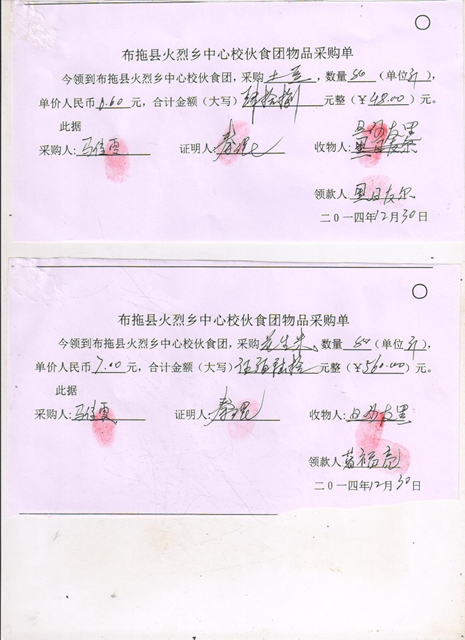 布拖县火烈乡中心校伙食团物品采购单
今领到布拖县火烈乡中心校伙食团，采购土豆，数量80（单位斤），
单价人民币0.60元，合计金额（大写）肆拾捌元整（￥48.00）元。
此据
采购人:马 证明人:秦 收物人:
领款人:
二０一四年12月30日
布拖县火烈乡中心校伙食团物品采购单
今领到布拖县火烈乡中心校伙食团，采购花生米，数量80（单位斤），
单价人民币7.00元，合计金额（大写）伍佰陆拾元整（￥560.00）元。
此据
采购人:马 证明人:秦 收物人:
领款人
二０一四年12月30日